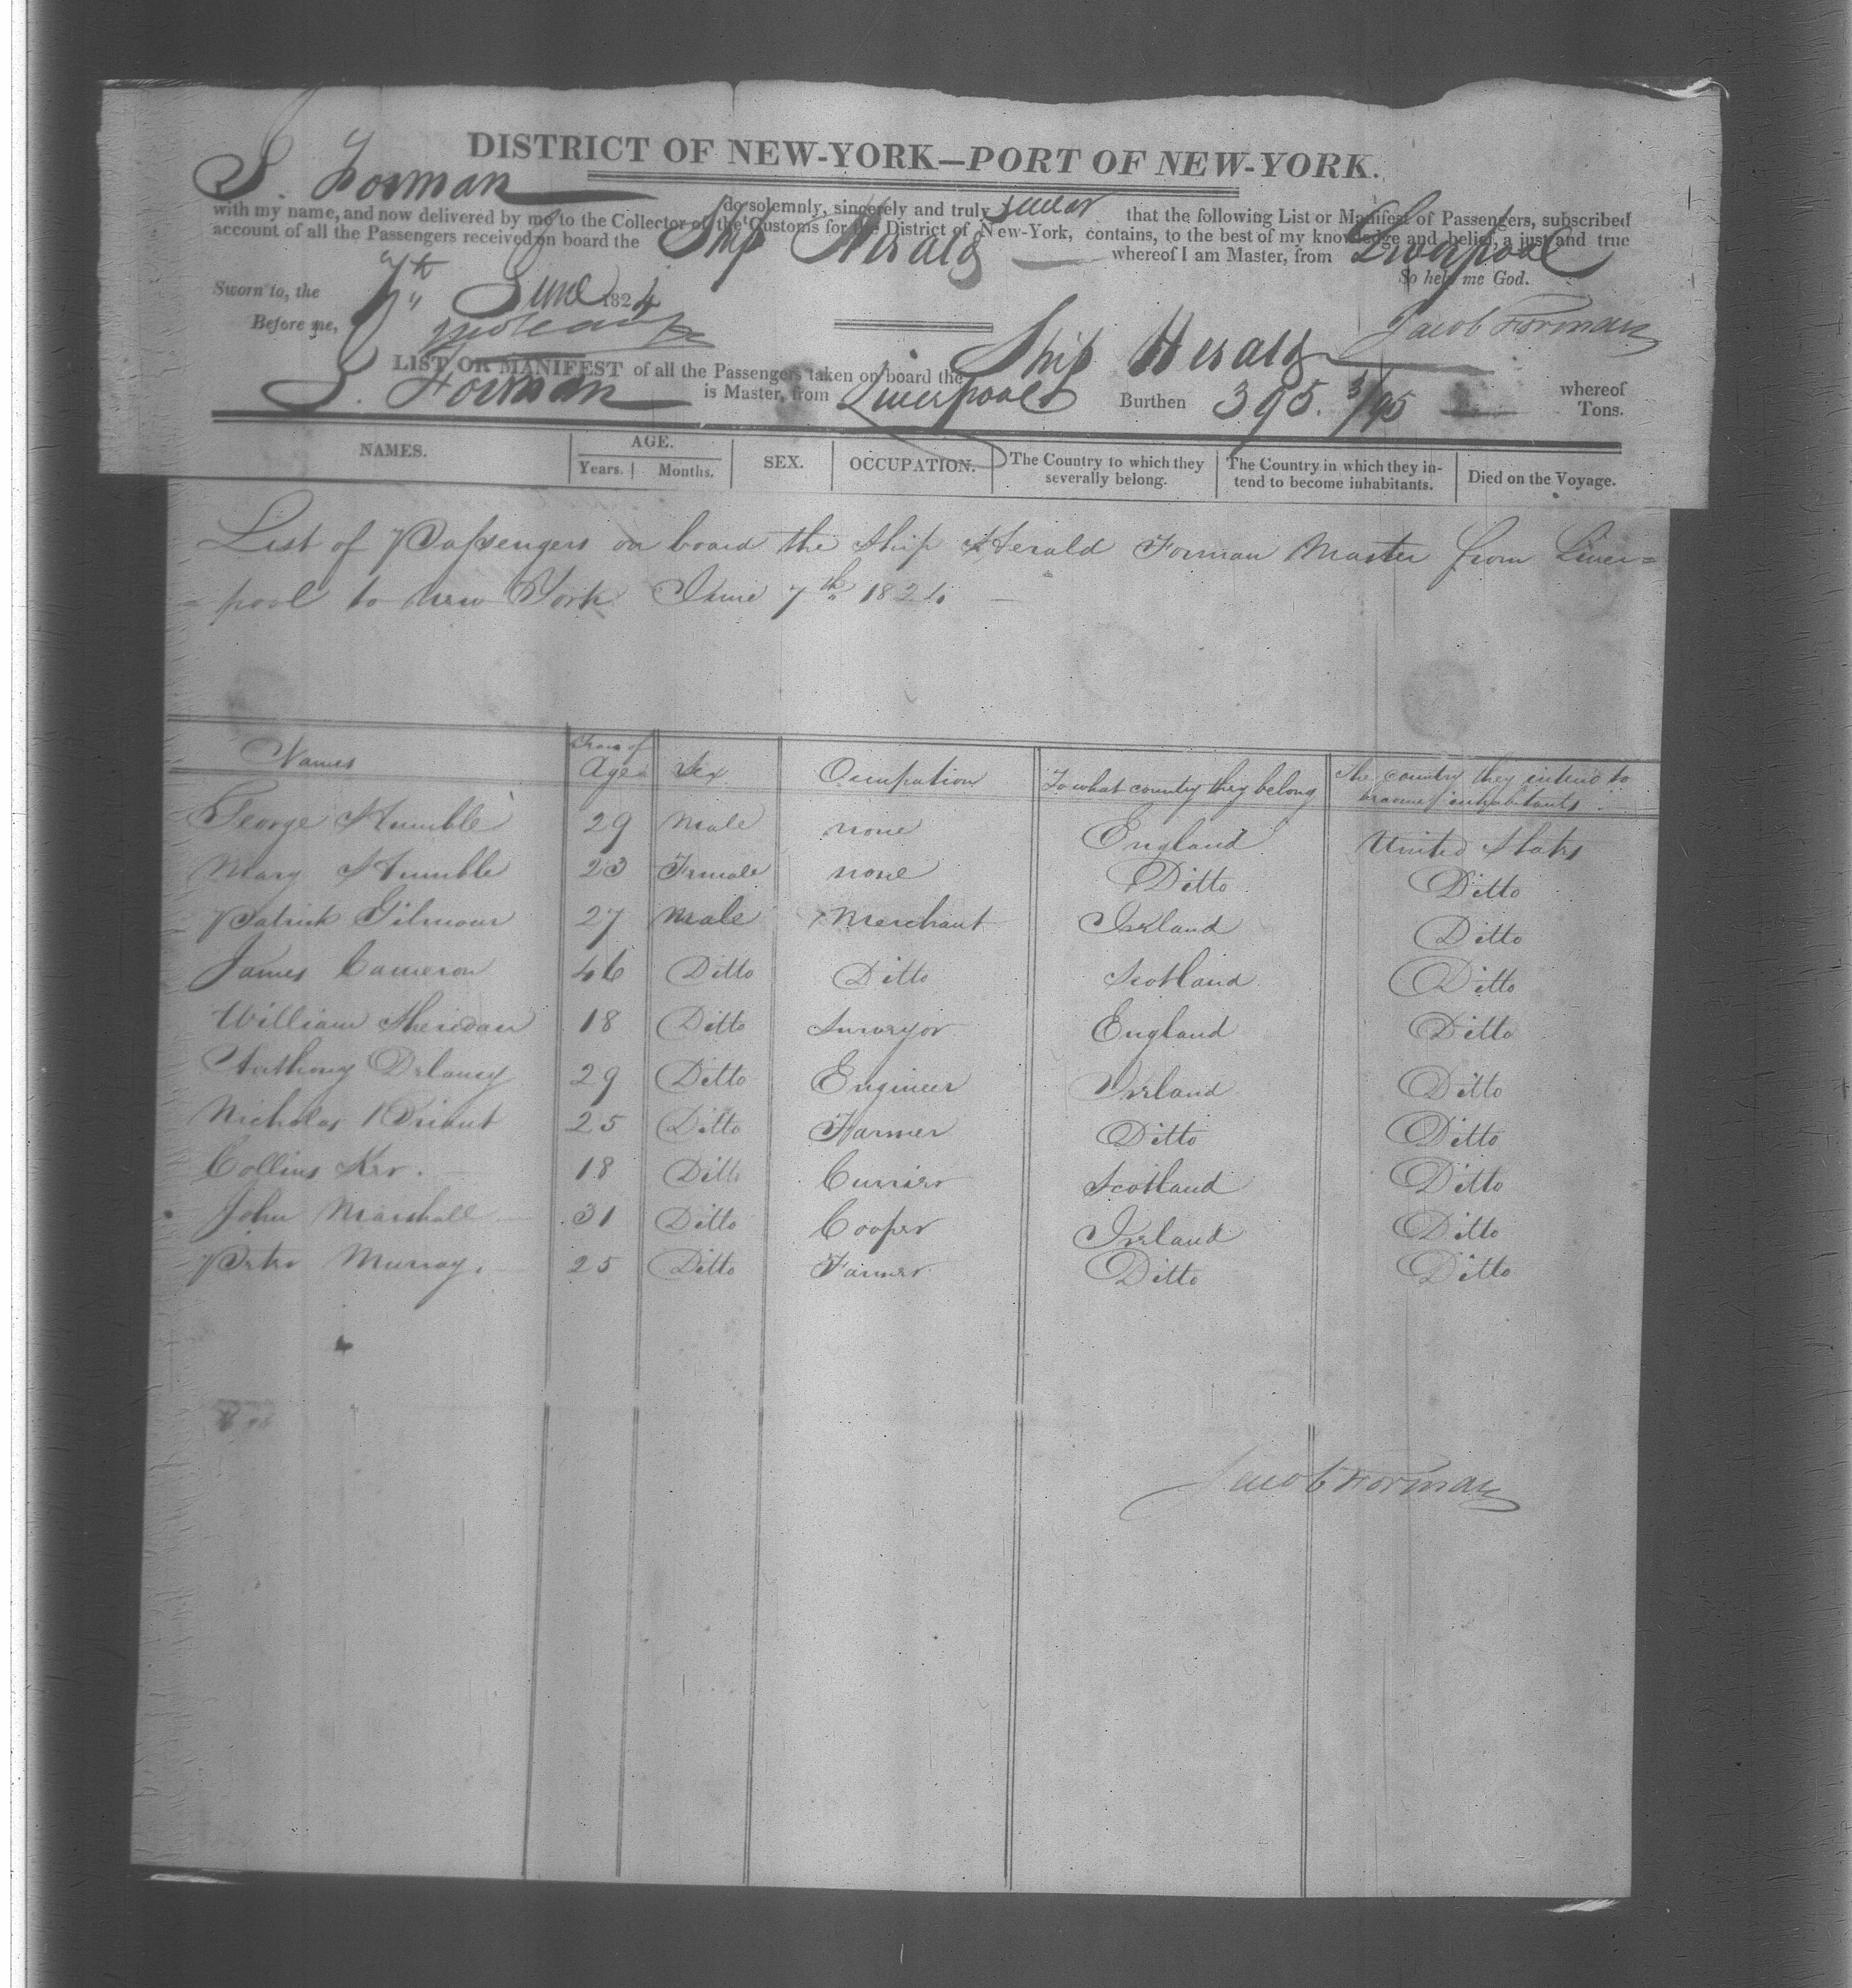 DISTRICT OF NEW-YORK—PORT OF NEW-YORK.
J. Forman do solemnly, sincerely and truly swear that the following List or Manifest of Passengers, subscribed
with my name, and now delivered by me to the Collector of the Customs for the District of New-York, contains, to the best of my knowledge and belief, a just and true
account of all the Passengers received on board the Ship Herald whereof I am Master, from Liverpool
So help me God.
Sworn to, the 7th June 1824
Before me,
Jacob Forman
LIST OR MANIFEST of all the Passengers taken on board the Ship Herald whereof
J. Forman is Master, from Liverpool Burthen 395. 3/95 Tons.
NAMES. AGE. Years. Months. SEX. OCCUPATION. The Country to which they severally belong. The Country in which they intend to become inhabitants. Died on the Voyage.
List of Passengers on board the Ship Herald Forman Master from Liver=
=pool to New York June 7th 1824
Names Years of Age Sex Occupation To what country they belong The country they intend to become inhabitants
George Humble 29 Male none England United States
Mary Humble 23 Female none Ditto Ditto
Patrick Gilmour 27 Male Merchant Ireland Ditto
James Cameron 46 Ditto Ditto Scotland Ditto
William Sheridan 18 Ditto Surveyor England Ditto
Anthony Delaney 29 Ditto Engineer Ireland Ditto
Nicholas 25 Ditto Farmer Ditto Ditto
Collins Ker. 18 Ditto Currier Scotland Ditto
John Marshall 31 Ditto Cooper Ireland Ditto
Peter Murray. 25 Ditto Farmer Ditto Ditto
Jacob Forman